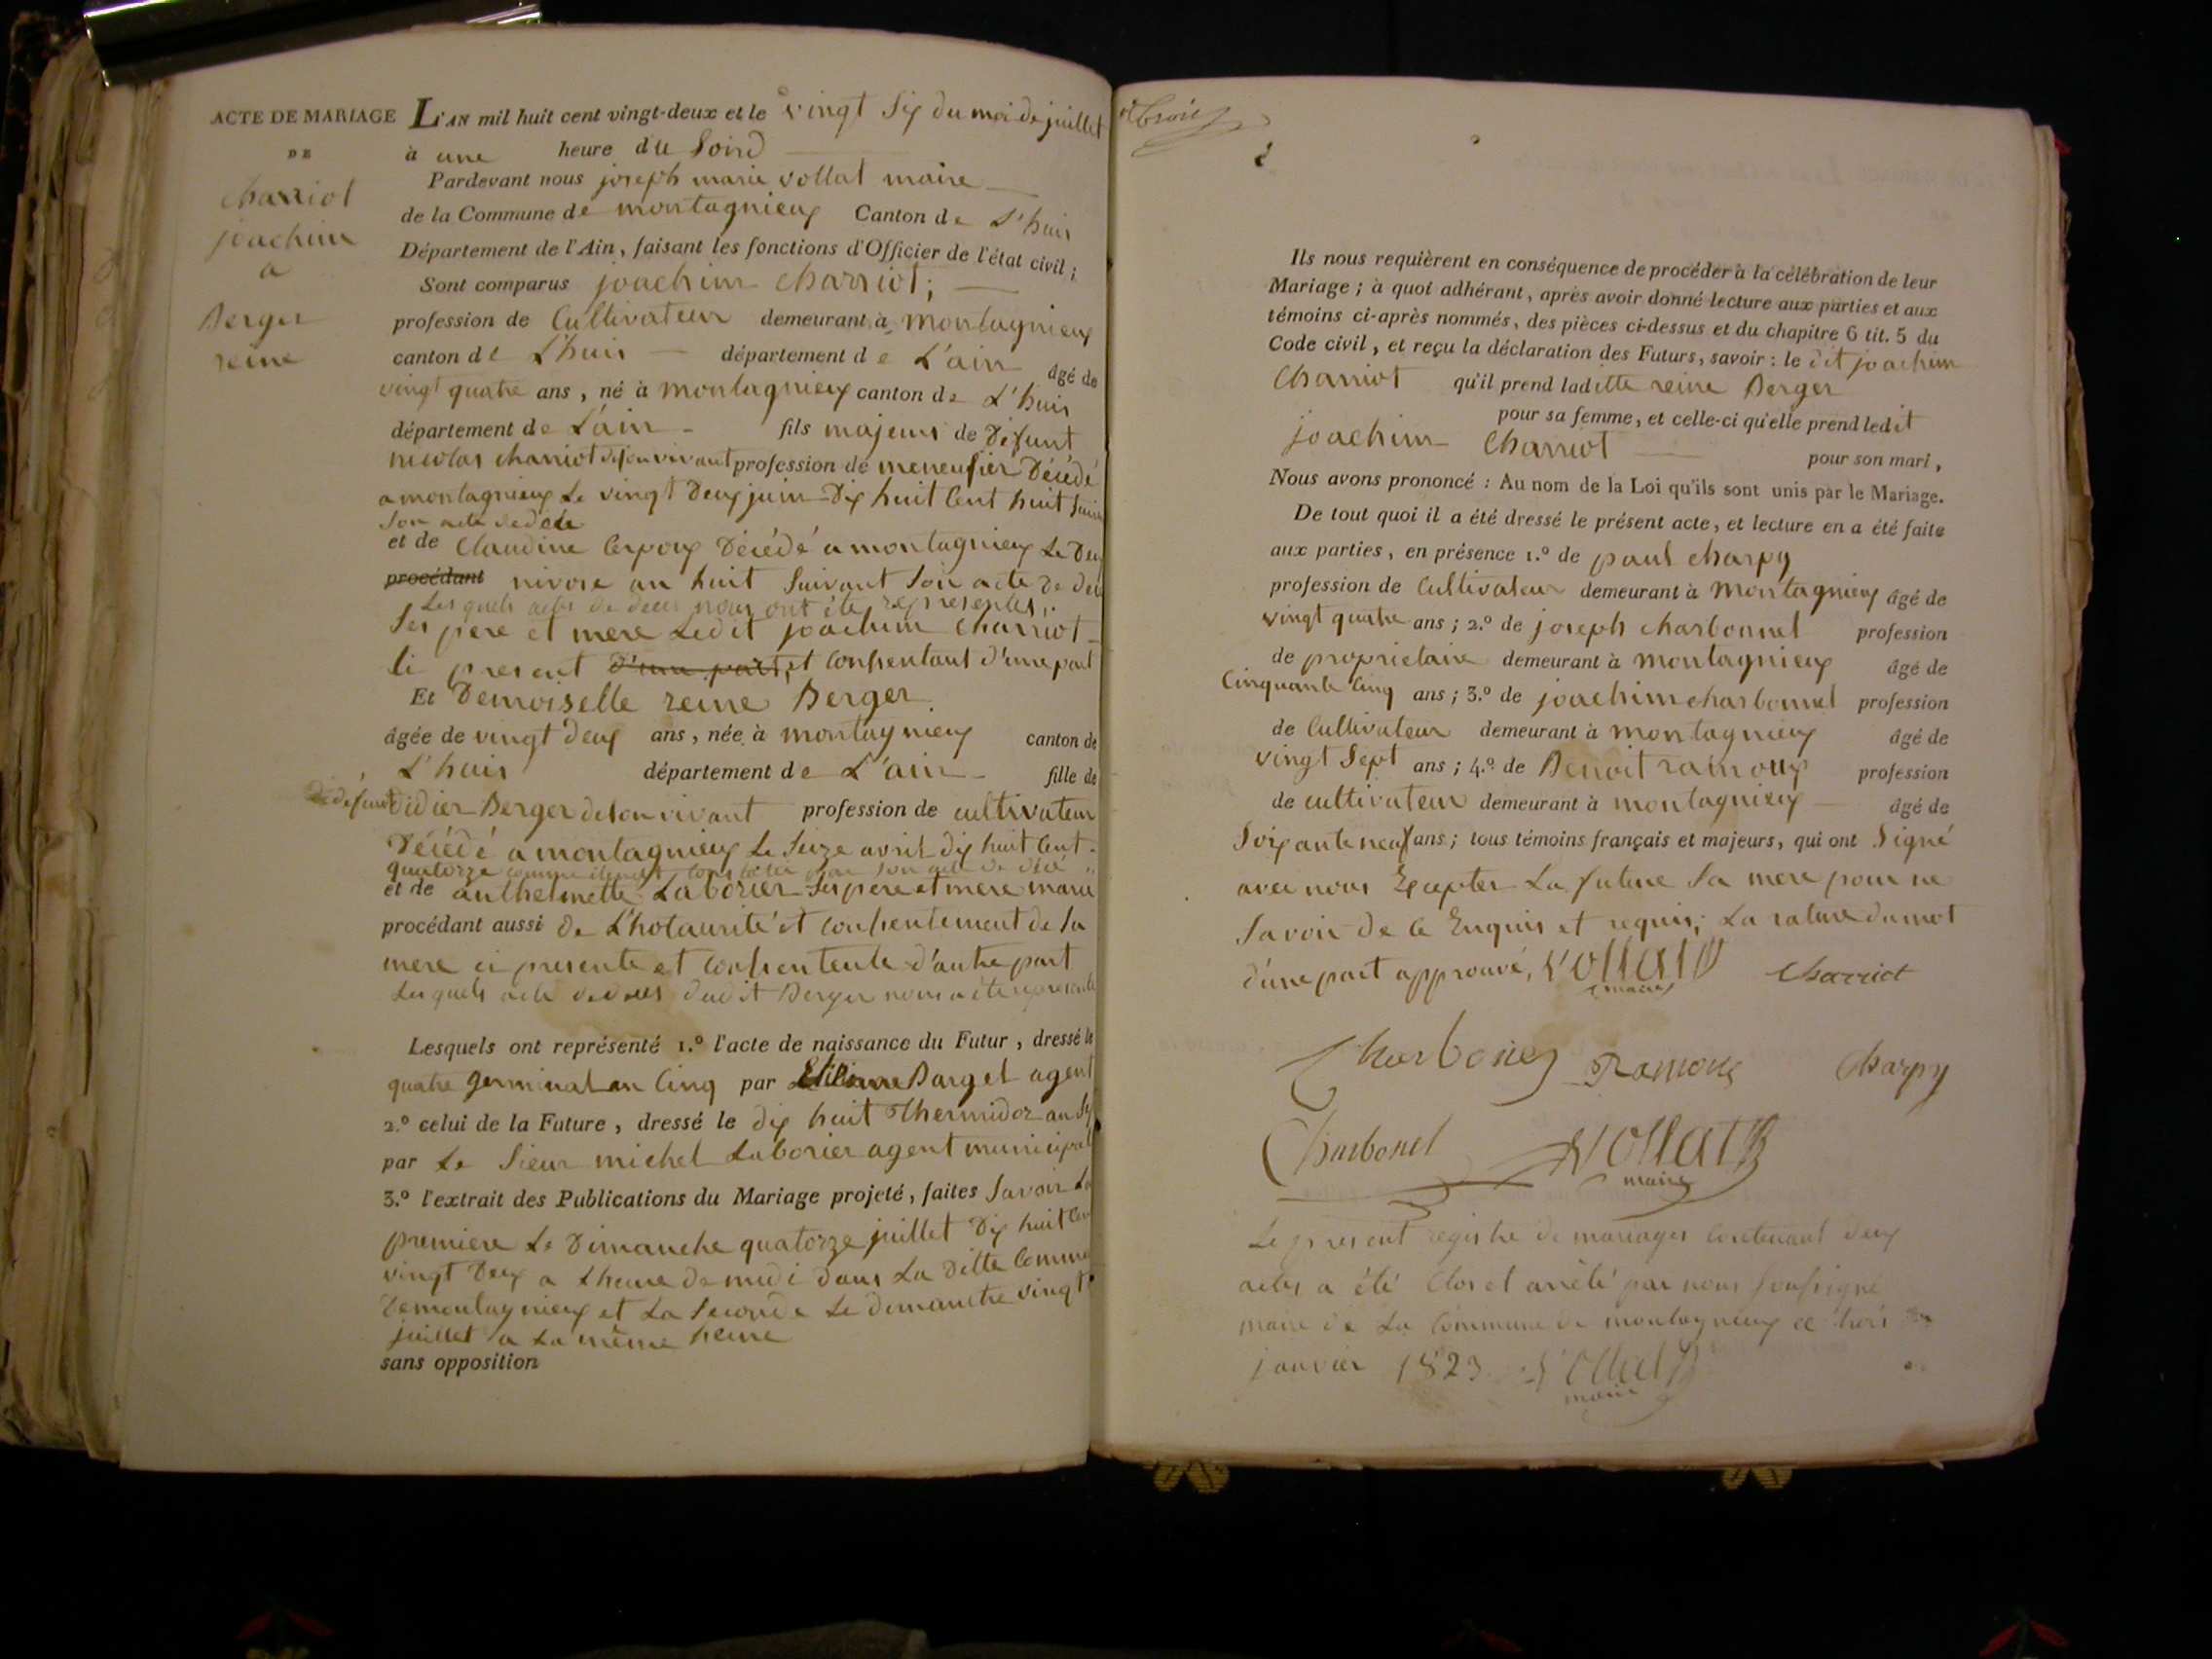 ACTE DE MARIAGE
DE
charriot
joachim
a
Berger
reine
L'AN mil huit cent vingt-deux et le vingt six du moi de juillet
à une heure du Soird
Pardevant nous joseph marie vollat maire
de la Commune de montagnieux Canton de L'huis
Département de l'Ain, faisant les fonctions d'Officier de l'état civil;
Sont comparus joachim charriot;
profession de Cultivateur demeurant à montagnieux
canton de L'huis département de L'ain âgé de
vingt quatre ans, né à montagnieux canton de L'huis
département de L'ain fils majeur de Défunt
nicolas charriot de son vivant profession de meneusier Décédé
a montagnieux Le vingt Deux juin Dix huit Cent huit suivant
Son acte de décé
et de Claudine Décédé a montagnieux Le Deux
procédant nivose an huit Suivant Son acte de decé
Les quels actes de deces nous ont été representés,
Ses pere et mere Ledit joachim charriot
ci present d'une part, et Consentant d'une part
Et Demoiselle reine Berger
âgée de vingt deux ans, née à montagnieux canton de
L'huis département de L'ain fille de
de défunt Didier Berger de son vivant profession de cultivateur
Décédé a montagnieux Le Seize avril dix huit Cent
quatorze comme il par son acte de décé
et de anthelmette Laborier Ses pere et mere marié
procédant aussi de L'hotaurité et consentement de sa
mere ci presente et Consentente d'autre part
Les quels acte de deces dudit Berger nous a été representé
Lesquels ont représenté 1.º l'acte de naissance du Futur, dressé le
quatre germinal an Cinq par Etienne Barget agent
2.º celui de la Future, dressé le dix huit Thermidor an Six
par Le Sieur michel Laborier agent municipal
3.º l'extrait des Publications du Mariage projeté, faites Savoir La
premiere Le Dimanche quatorze juillet Dix huit Cent
vingt Deux a L'heure de midi dans La Ditte Commune
de montagnieux et La Seconde Le dimanche vingt
juillet a La même heure
sans opposition
Ils nous requièrent en conséquence de procéder à la célébration de leur
Mariage; à quoi adhérant, après avoir donné lecture aux parties et aux
témoins ci-après nommés, des pièces ci-dessus et du chapitre 6 tit. 5 du
Code civil, et reçu la déclaration des Futurs, savoir: le dit joachim
Charriot qu'il prend laditte reine Berger
pour sa femme, et celle-ci qu'elle prend ledit
joachim Charriot pour son mari,
Nous avons prononcé: Au nom de la Loi qu'ils sont unis par le Mariage.
De tout quoi il a été dressé le présent acte, et lecture en a été faite
aux parties, en présence 1.º de paul charpy
profession de Cultivateur demeurant à montagnieux âgé de
vingt quatre ans; 2.º de joseph charbonnel profession
de proprietaire demeurant à montagnieux âgé de
Cinquante Cinq ans; 3.º de joachim charbonnel profession
de Cultivateur demeurant à montagnieux âgé de
vingt Sept ans; 4.º de Benoit ramoux profession
de cultivateur demeurant à montagnieux âgé de
Soixante neuf ans; tous témoins français et majeurs, qui ont Signé
avec nous Excepter La future Sa mere pour ne
Savoir de ce Enquis et requis; La rature du mot
d'une part approuvé, Vollat Charriot
maire
Charbonel Ramoux Charpy
Charbonel Vollat
maire
Le present registre de mariages Contenant deux
actes a été Clos et arrêté par nous Soussigné
maire de La Commune de montagnieux ce trois
janvier 1823 Vollat
maire